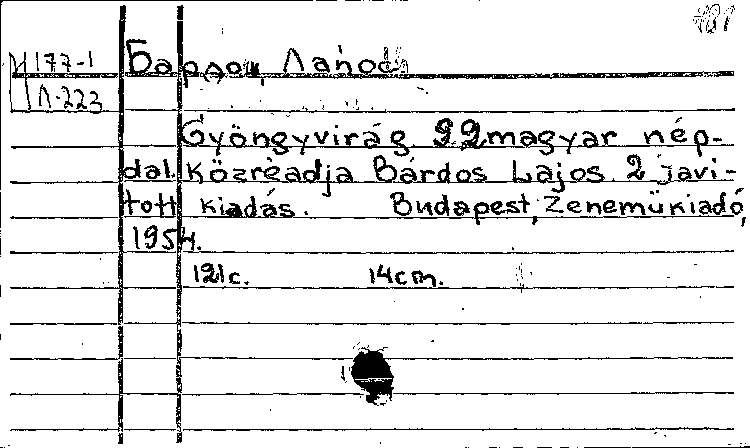 И177-1
Л-223
Бардош, Лайош
Gyöngyvirág 92 magyar nép-
dal. Közreadja Bárdos Lajos. 2 javi-
tott kiadás. Budapest, Zeneműkiadó,
1954.
121c. 14cm.